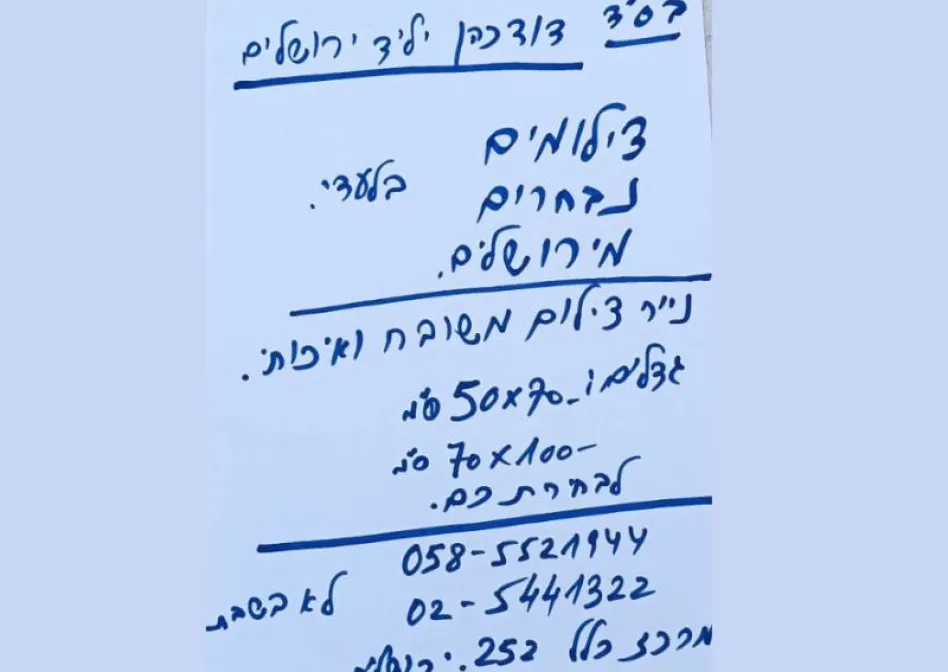 בס״ד
דוד כהן יליד ירושלים
צילומים
נבחרים בלעדי.
מירושלים.
נייר צילום משובח ואיכותי.
גדלים: 50x70 ס״מ
70x100 ס״מ
לבחירתכם.
058-5521944
02-5441322 לא בשבת
מרכז כלל 252.